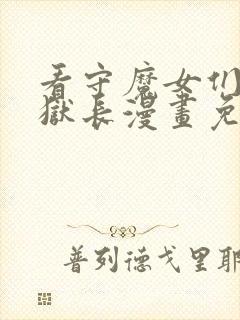 看守魔女们
獄長漫畫免
普列德戈里耶